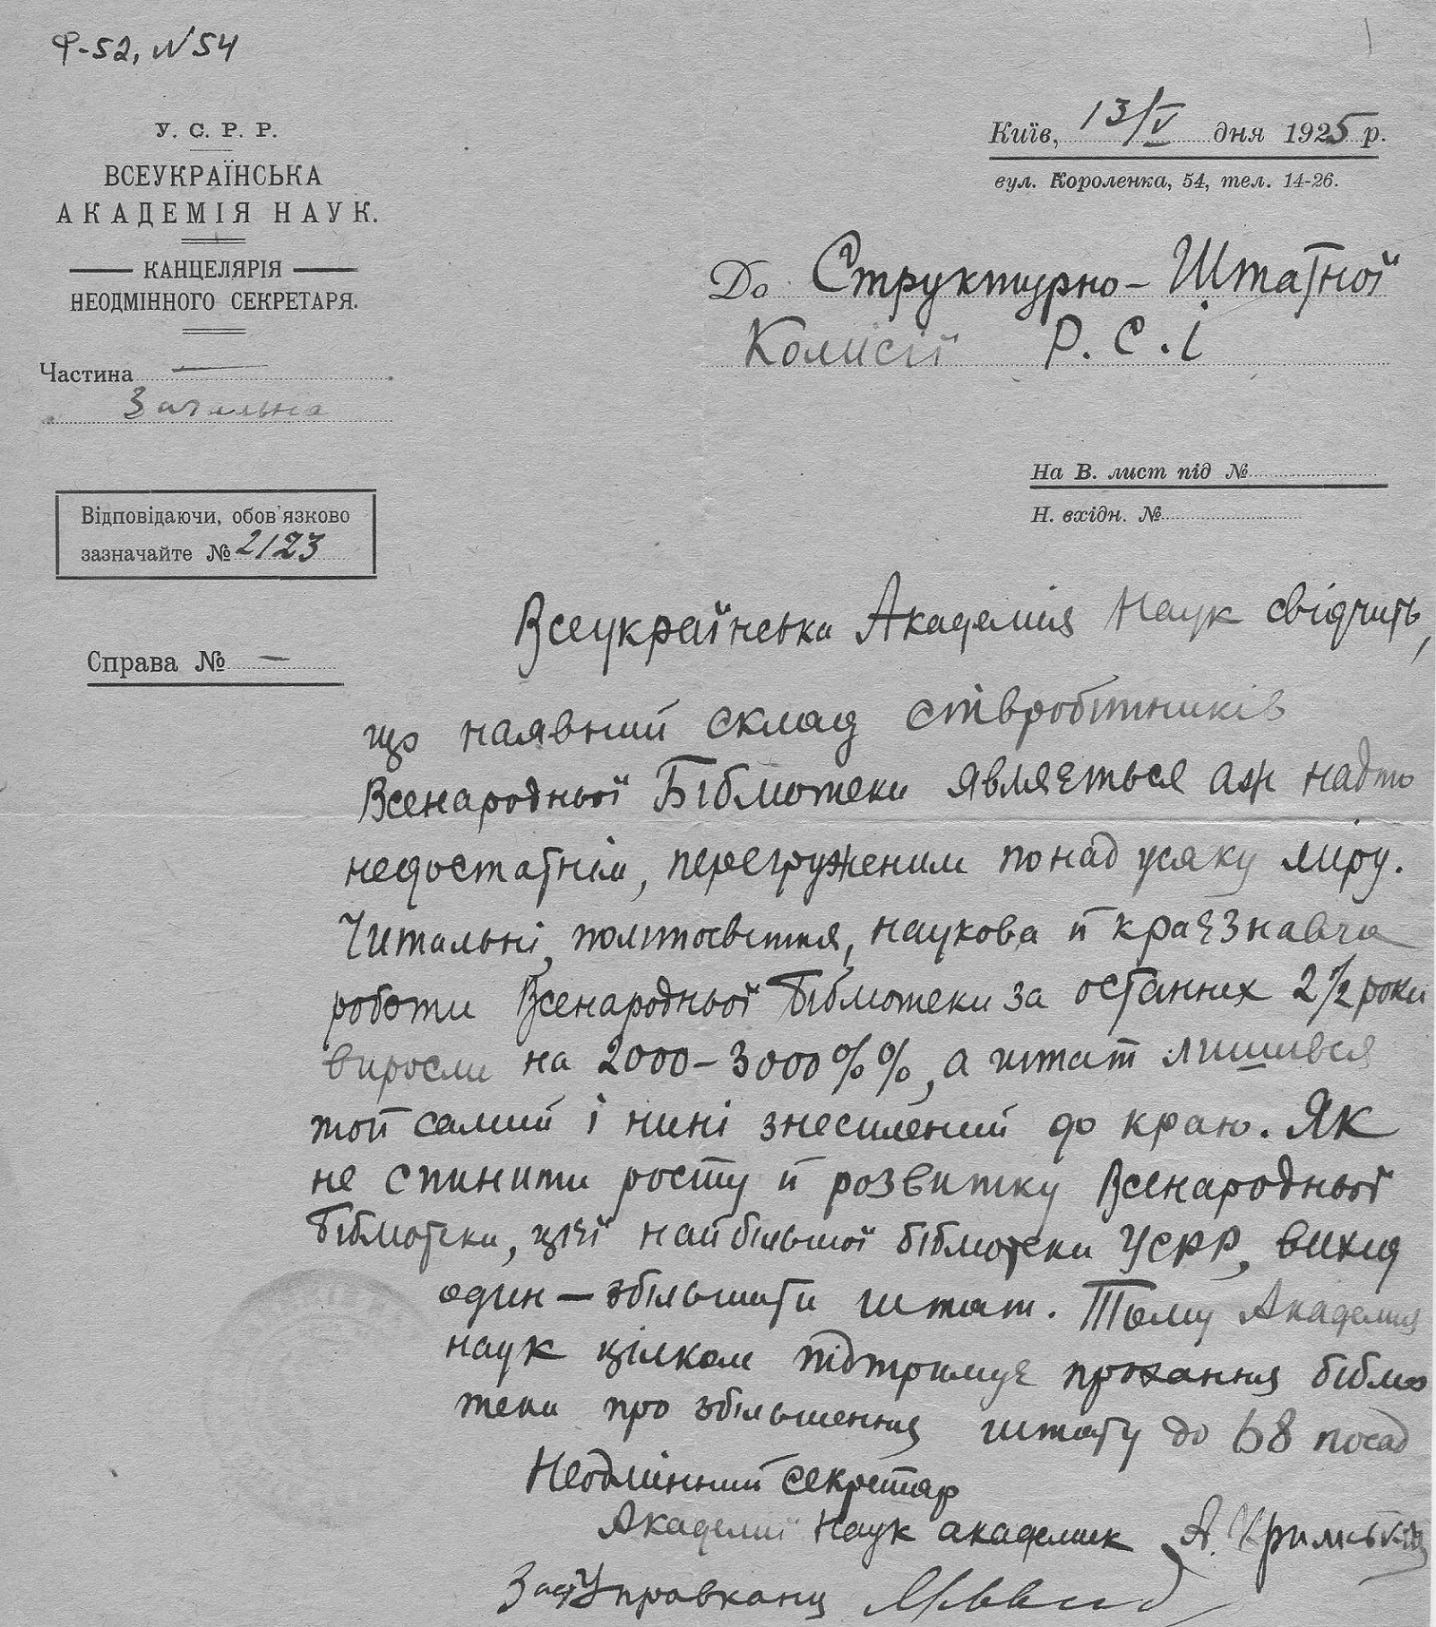 Ф-52, № 54
У. С. Р. Р.
ВСЕУКРАЇНСЬКА
АКАДЕМІЯ НАУК.
КАНЦЕЛЯРІЯ
НЕОДМІННОГО СЕКРЕТАРЯ.
Частина
Загальна
Відповідаючи, обов'язково
зазначайте № 2123
Справа № —
Київ, 13/V дня 1925 р.
вул. Короленка, 54, тел. 14-26.
До Структурно-Штатної
Комісії Р. С. І
На В. лист під №
Н. вхідн. №
Всеукраїнська Академія Наук свідчить,
що наявний склад співробітників
Всенародньої Бібліотеки являється аж надто
недостатнім, перегруженим понад усяку міру.
Читальні, політосвітня, наукова й краєзнавча
роботи Всенародньої Бібліотеки за останних 2 1/2 роки
виросли на 2000-3000%%, а штат лишився
той самий і нині знесилений до краю. Як
не спинити росту й розвитку Всенародньої
Бібліотеки, цієї найбільшої бібліотеки УСРР, вихід
один — збільшити штат. Тому Академія
наук цілком підтримує прохання бібліо
теки про збільшення штату до 68 посад
Неодмінний секретар
Академії Наук академик А. Кримський
Заст Управканц